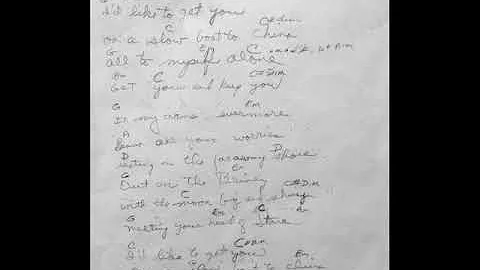 I'd like to get you
C C#dim
on a slow boat to China
G E C
all to myself alone
Bm C C#dim
Get you and keep you
G Em
In my arms evermore
A
leave all your worries
D D
on the faraway shore
G Em
Out on the Briney
C C#Dim
with the moon big and
G Em C A
melting your heart of stone
C C#dim
I'd like to get you Bm
boat to China